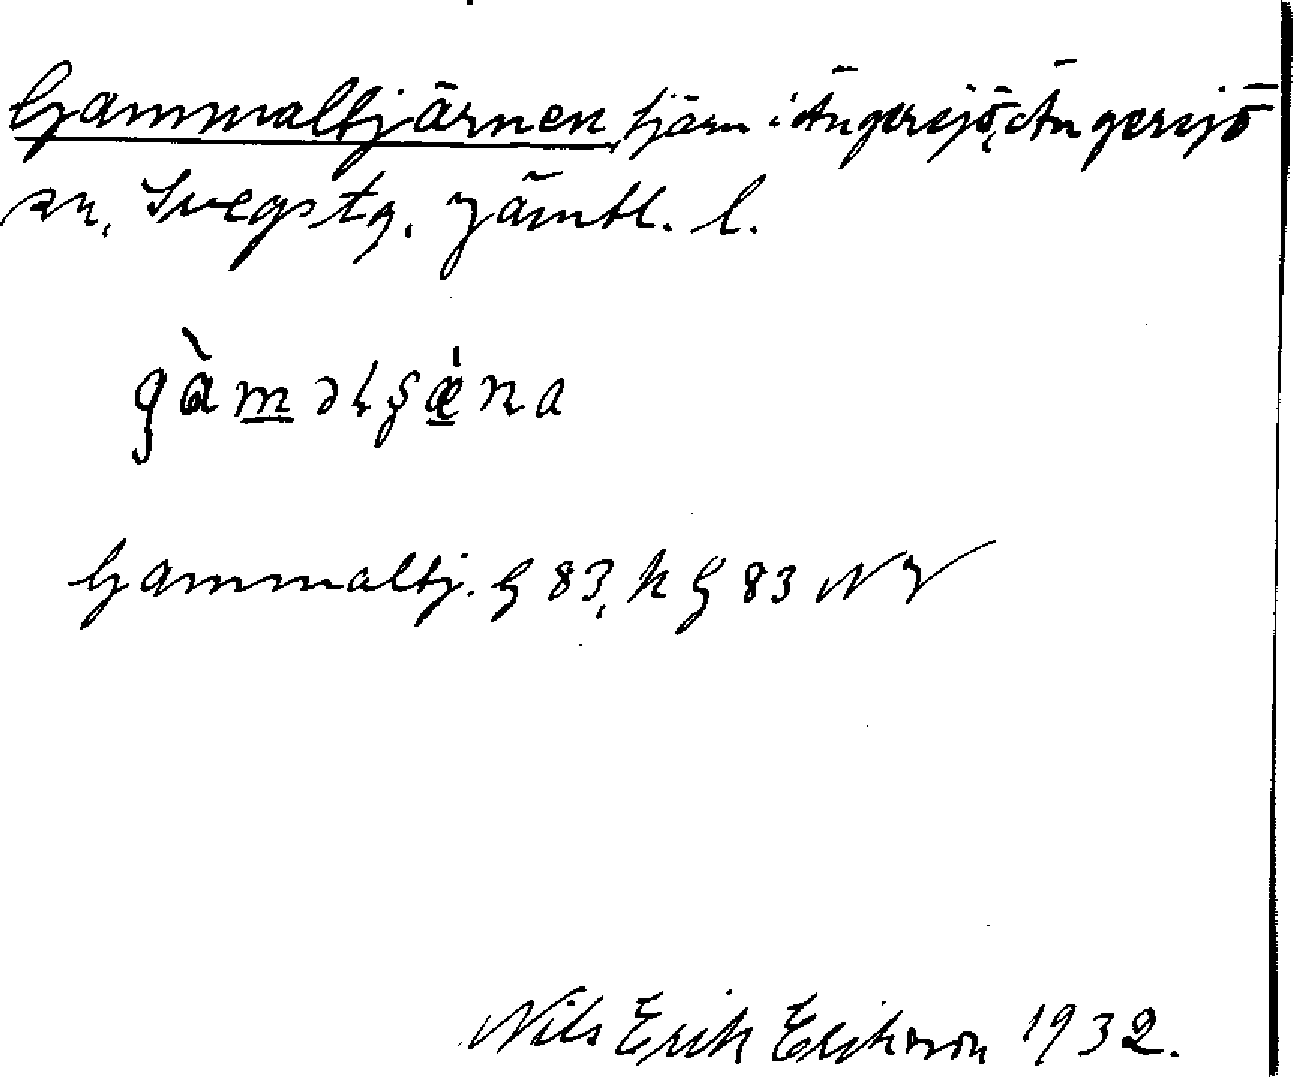 Gammaltjärnen, tjärn i Ängersjö, Ängersjö
sn, Svegs tg. Jämtl. l.
gàmǝlʂǽna
Gammaltj. G 83, k G 83 NV
Nils Erik Erikson 1932.